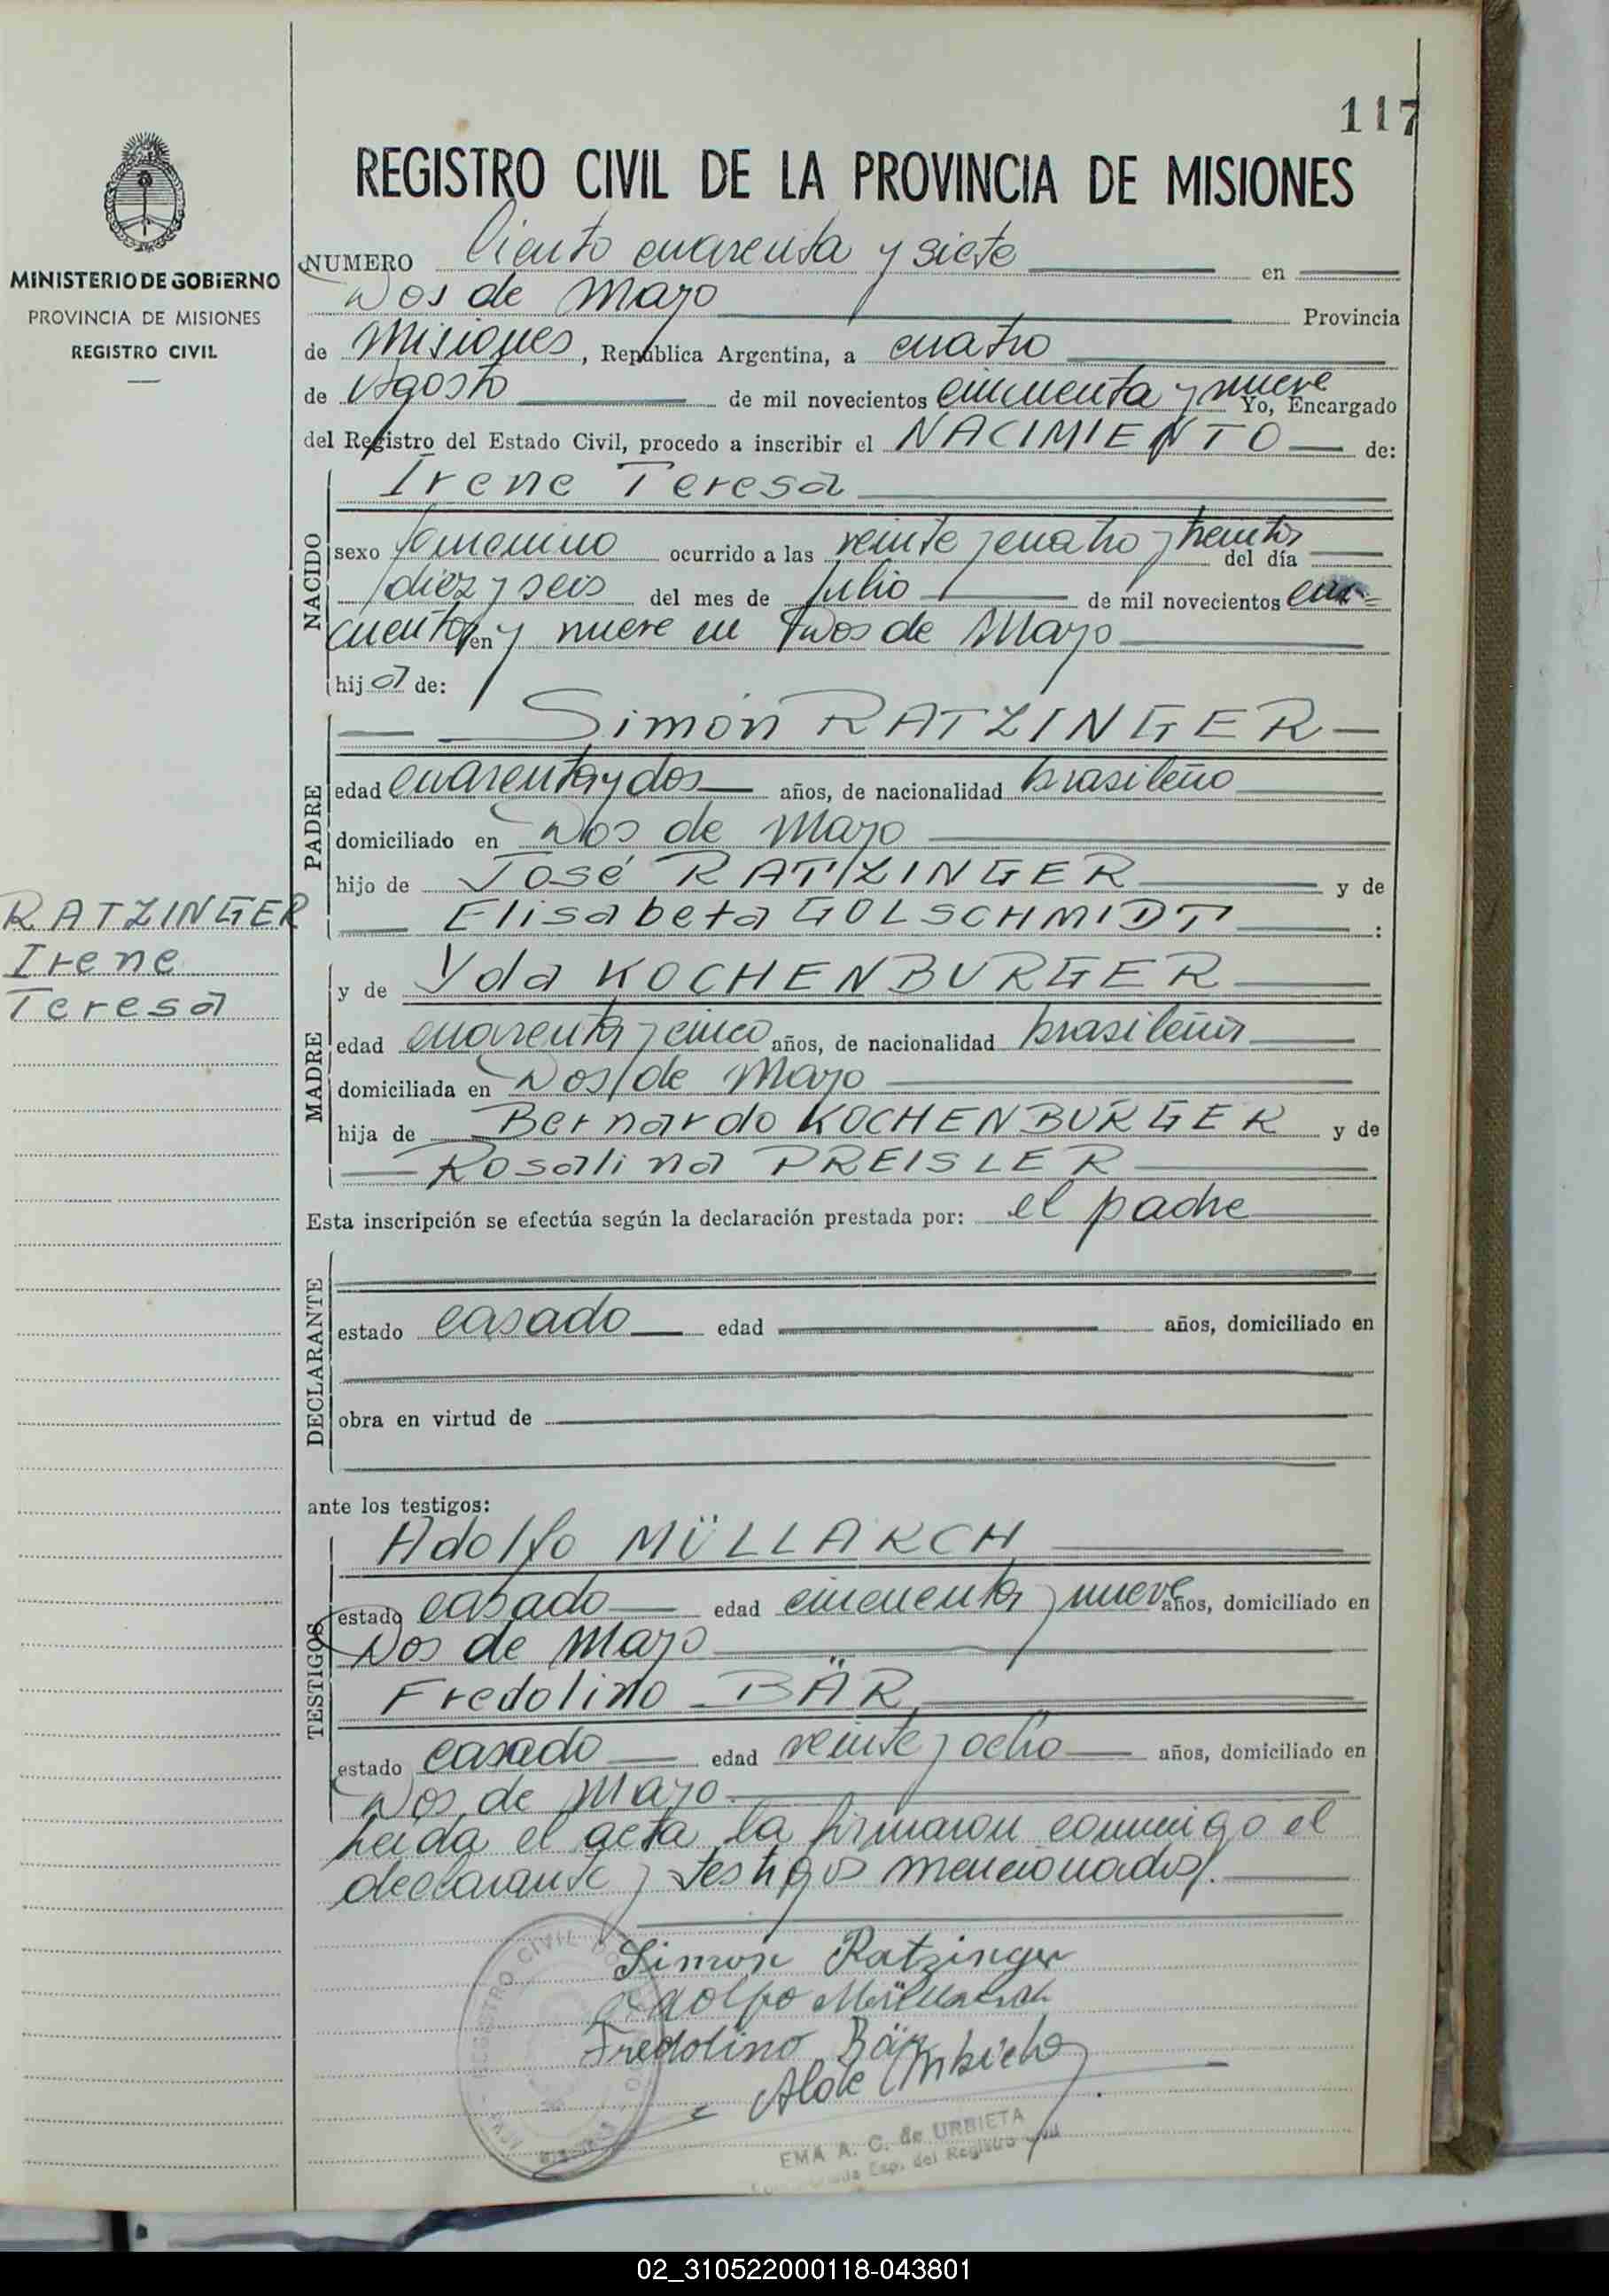 117
REGISTRO CIVIL DE LA PROVINCIA DE MISIONES
MINISTERIO DE GOBIERNO
PROVINCIA DE MISIONES
REGISTRO CIVIL
NUMERO Ciento cuarenta y siete en
Dos de Mayo Provincia
de Misiones, República Argentina, a cuatro
de Agosto de mil novecientos cincuenta y nueve Yo, Encargado
del Registro del Estado Civil, procedo a inscribir el NACIMIENTO de:
NACIDO
Irene Teresa
sexo femenino ocurrido a las veinte y cuatro y treinta del día
diez y seis del mes de Julio de mil novecientos cin=
cuenta en y nueve en Dos de Mayo
hija de:
PADRE
Simón RATZINGER
edad cuarenta y dos años, de nacionalidad brasileño
domiciliado en Dos de Mayo
hijo de José RATZINGER y de
Elisabeta GOLSCHMIDT :
RATZINGER
Irene
Teresa
MADRE
y de Yda KOCHENBURGER
edad cuarenta y cinco años, de nacionalidad brasileña
domiciliada en Dos de Mayo
hija de Bernardo KOCHENBURGER y de
Rosalina PREISLER
Esta inscripción se efectúa según la declaración prestada por: el padre
DECLARANTE
estado casado edad años, domiciliado en
obra en virtud de
ante los testigos:
TESTIGOS
Adolfo MÜLLARCH
estado casado edad cincuenta y nueve años, domiciliado en
Dos de Mayo
Fredolino BÄR
estado casado edad veinte y ocho años, domiciliado en
Dos de Mayo
Leida el acta la firmaron conmigo el
declarante y testigos mencionados.
Simon Ratzinger
Adolfo
Fredolino Bär
REGISTRO CIVIL
EMA A. C. de URBIETA
Esp. del Registro Civil
02_310522000118-043801